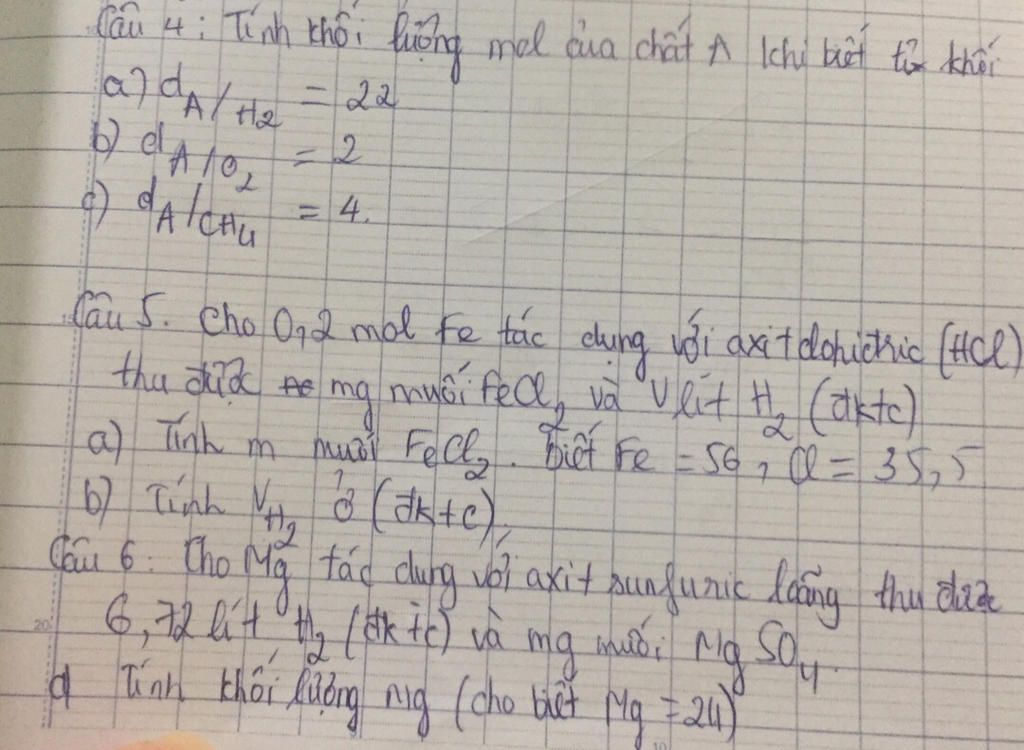 Câu 4: Tính khối lượng mol của chất A khi biết tỉ khối
a) dA/H2 = 22
b) dA/O2 = 2
c) dA/CH4 = 4.
Câu 5. Cho 0,2 mol Fe tác dụng với axit clohidric (HCl)
thu được mg muối FeCl2 và V lít H2 (đktc)
a) Tính m muối FeCl2. Biết Fe = 56, Cl = 35,5
b) Tính VH2 ở (đktc).
Câu 6: Cho Mg tác dụng với axit sunfuric loãng thu được
6,72 lít H2 (đktc) và mg muối MgSO4.
a Tính khối lượng Mg (cho biết Mg = 24)
20
10